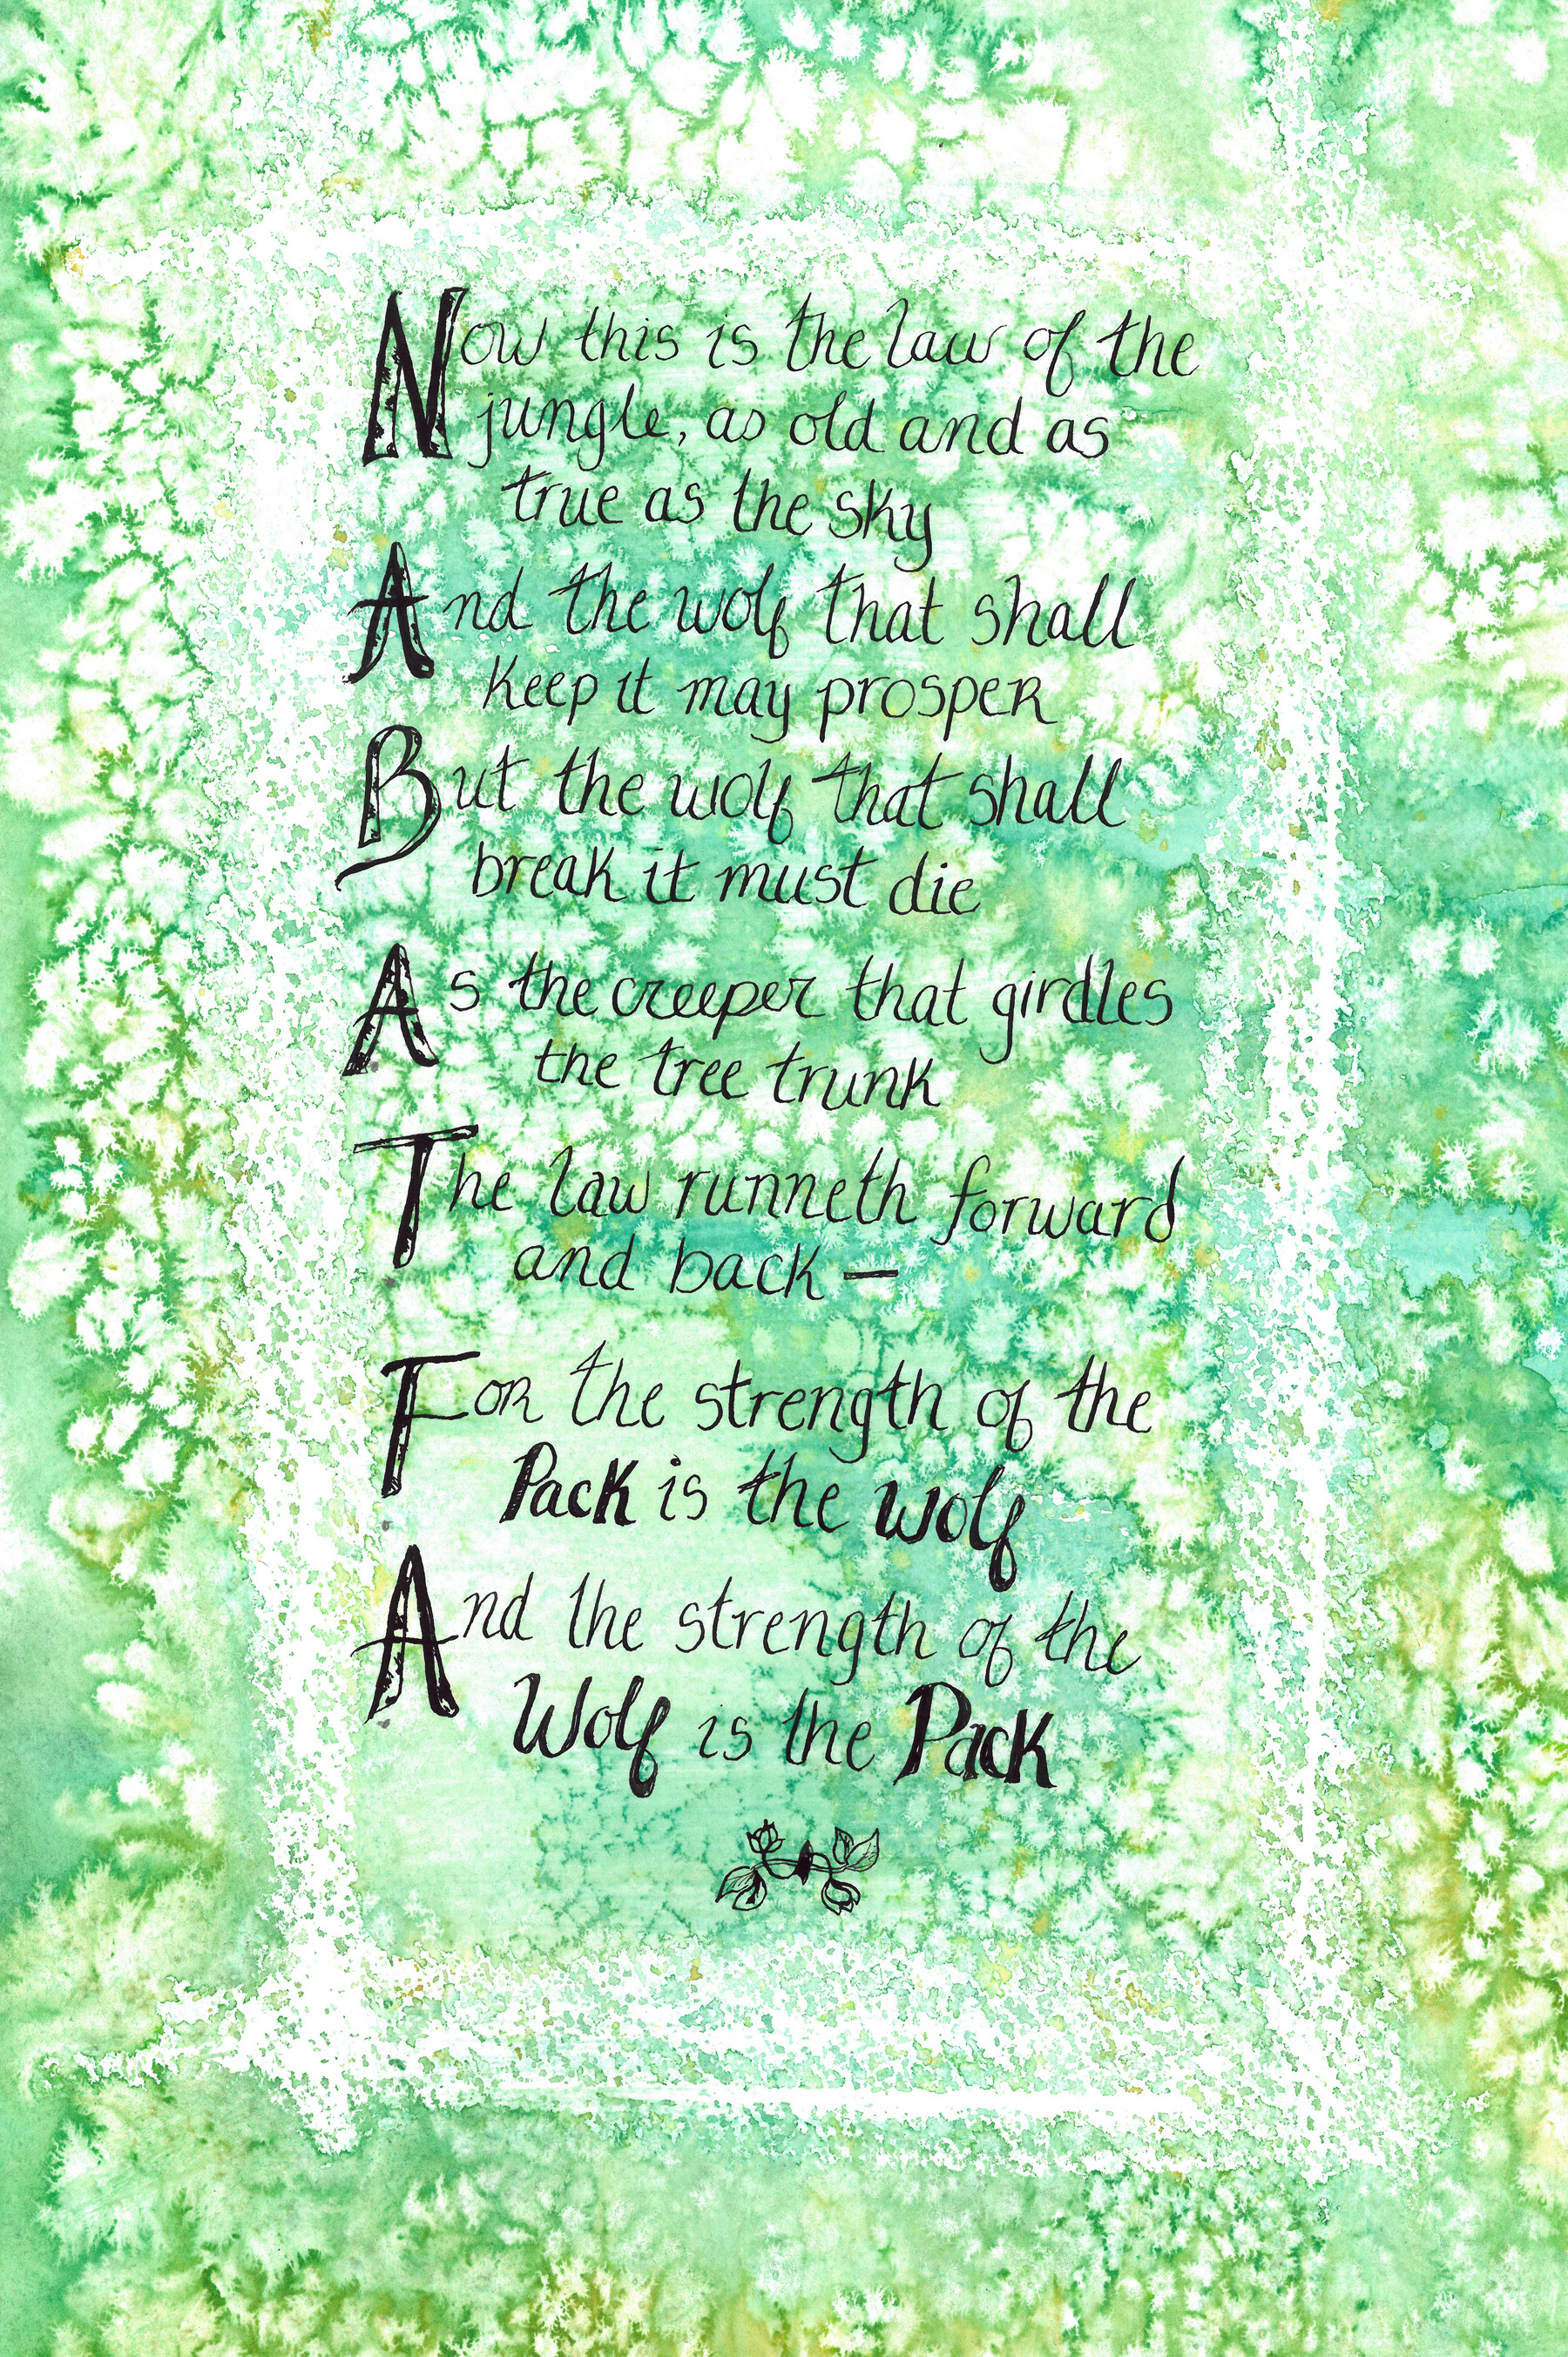 Now this is the law of the
jungle, as old and as
true as the sky
And the wolf that shall
keep it may prosper
But the wolf that shall
break it must die
As the creeper that girdles
the tree trunk
The law runneth forward
and back —
For the strength of the
Pack is the wolf
And the strength of the
Wolf is the Pack